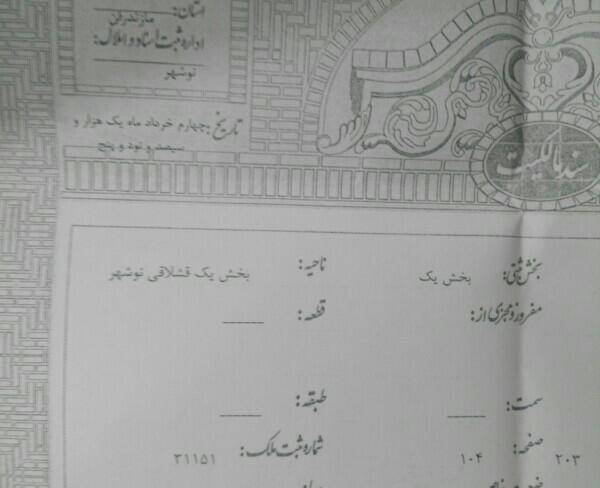 استان:
مازندران
اداره ثبت اسناد و املاک:
نوشهر
تاریخ: چهارم خرداد ماه یک هزار و
سیصد و نود و پنج
سند مالکیت
بخش ثبتی: بخش یک ناحیه: بخش یک قشلاقی نوشهر
مفروز و مجزی از: قطعه: ____
سمت: ____ طبقه: ____
۲۰۳ صفحه: ۱۰۴ شماره ثبت ملک: ۳۱۱۵۱